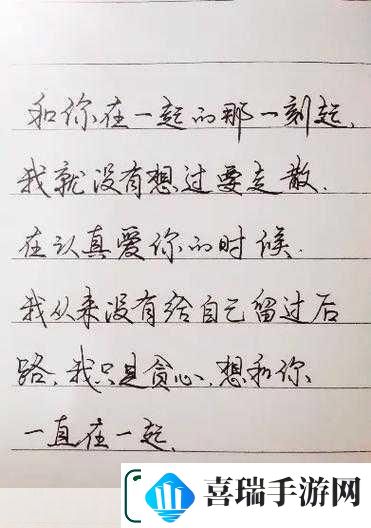 和你在一起的那一刻起,
我就没有想过要走散.
在认真爱你的时候.
我从来没有给自己留过后
路,我只是贪心,想和你、
一直在一起、
喜瑞手游网